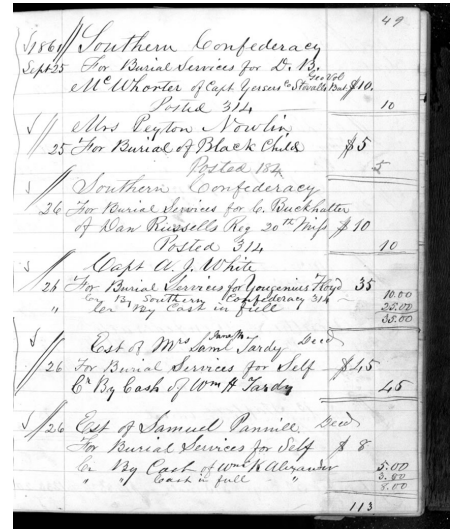 49
1861 Southern Confederacy
Sept 25 For Burial Services for D. B.
Geo Vol
McWhorter of Capt Yersers Co Stovalls Bat $10.
Posted 314 10
Mrs Peyton Nowlin
25 For Burial of Black Child $5
Posted 184 5
Southern Confederacy
26 For Burial Services for C. Buckhalter
of Dan Russells Reg 20th Miss $10
Posted 314 10
Capt A. J. White
26 For Burial Services for Yougenius Floyd 35
Cr By Southern Confederacy 314 10.00
" Cr By Cash in full 25.00
35.00
Est of Mrs Saml Tardy Deed
26 For Burial Services for Self $45
Cr By Cash of Wm H Tardy 45
26 Est of Samuel Pannill Deed
For Burial Services for Self $8
Cr By Cash of Wm K Alexander 5.00
" " Cash in full " 3.00
8.00
113